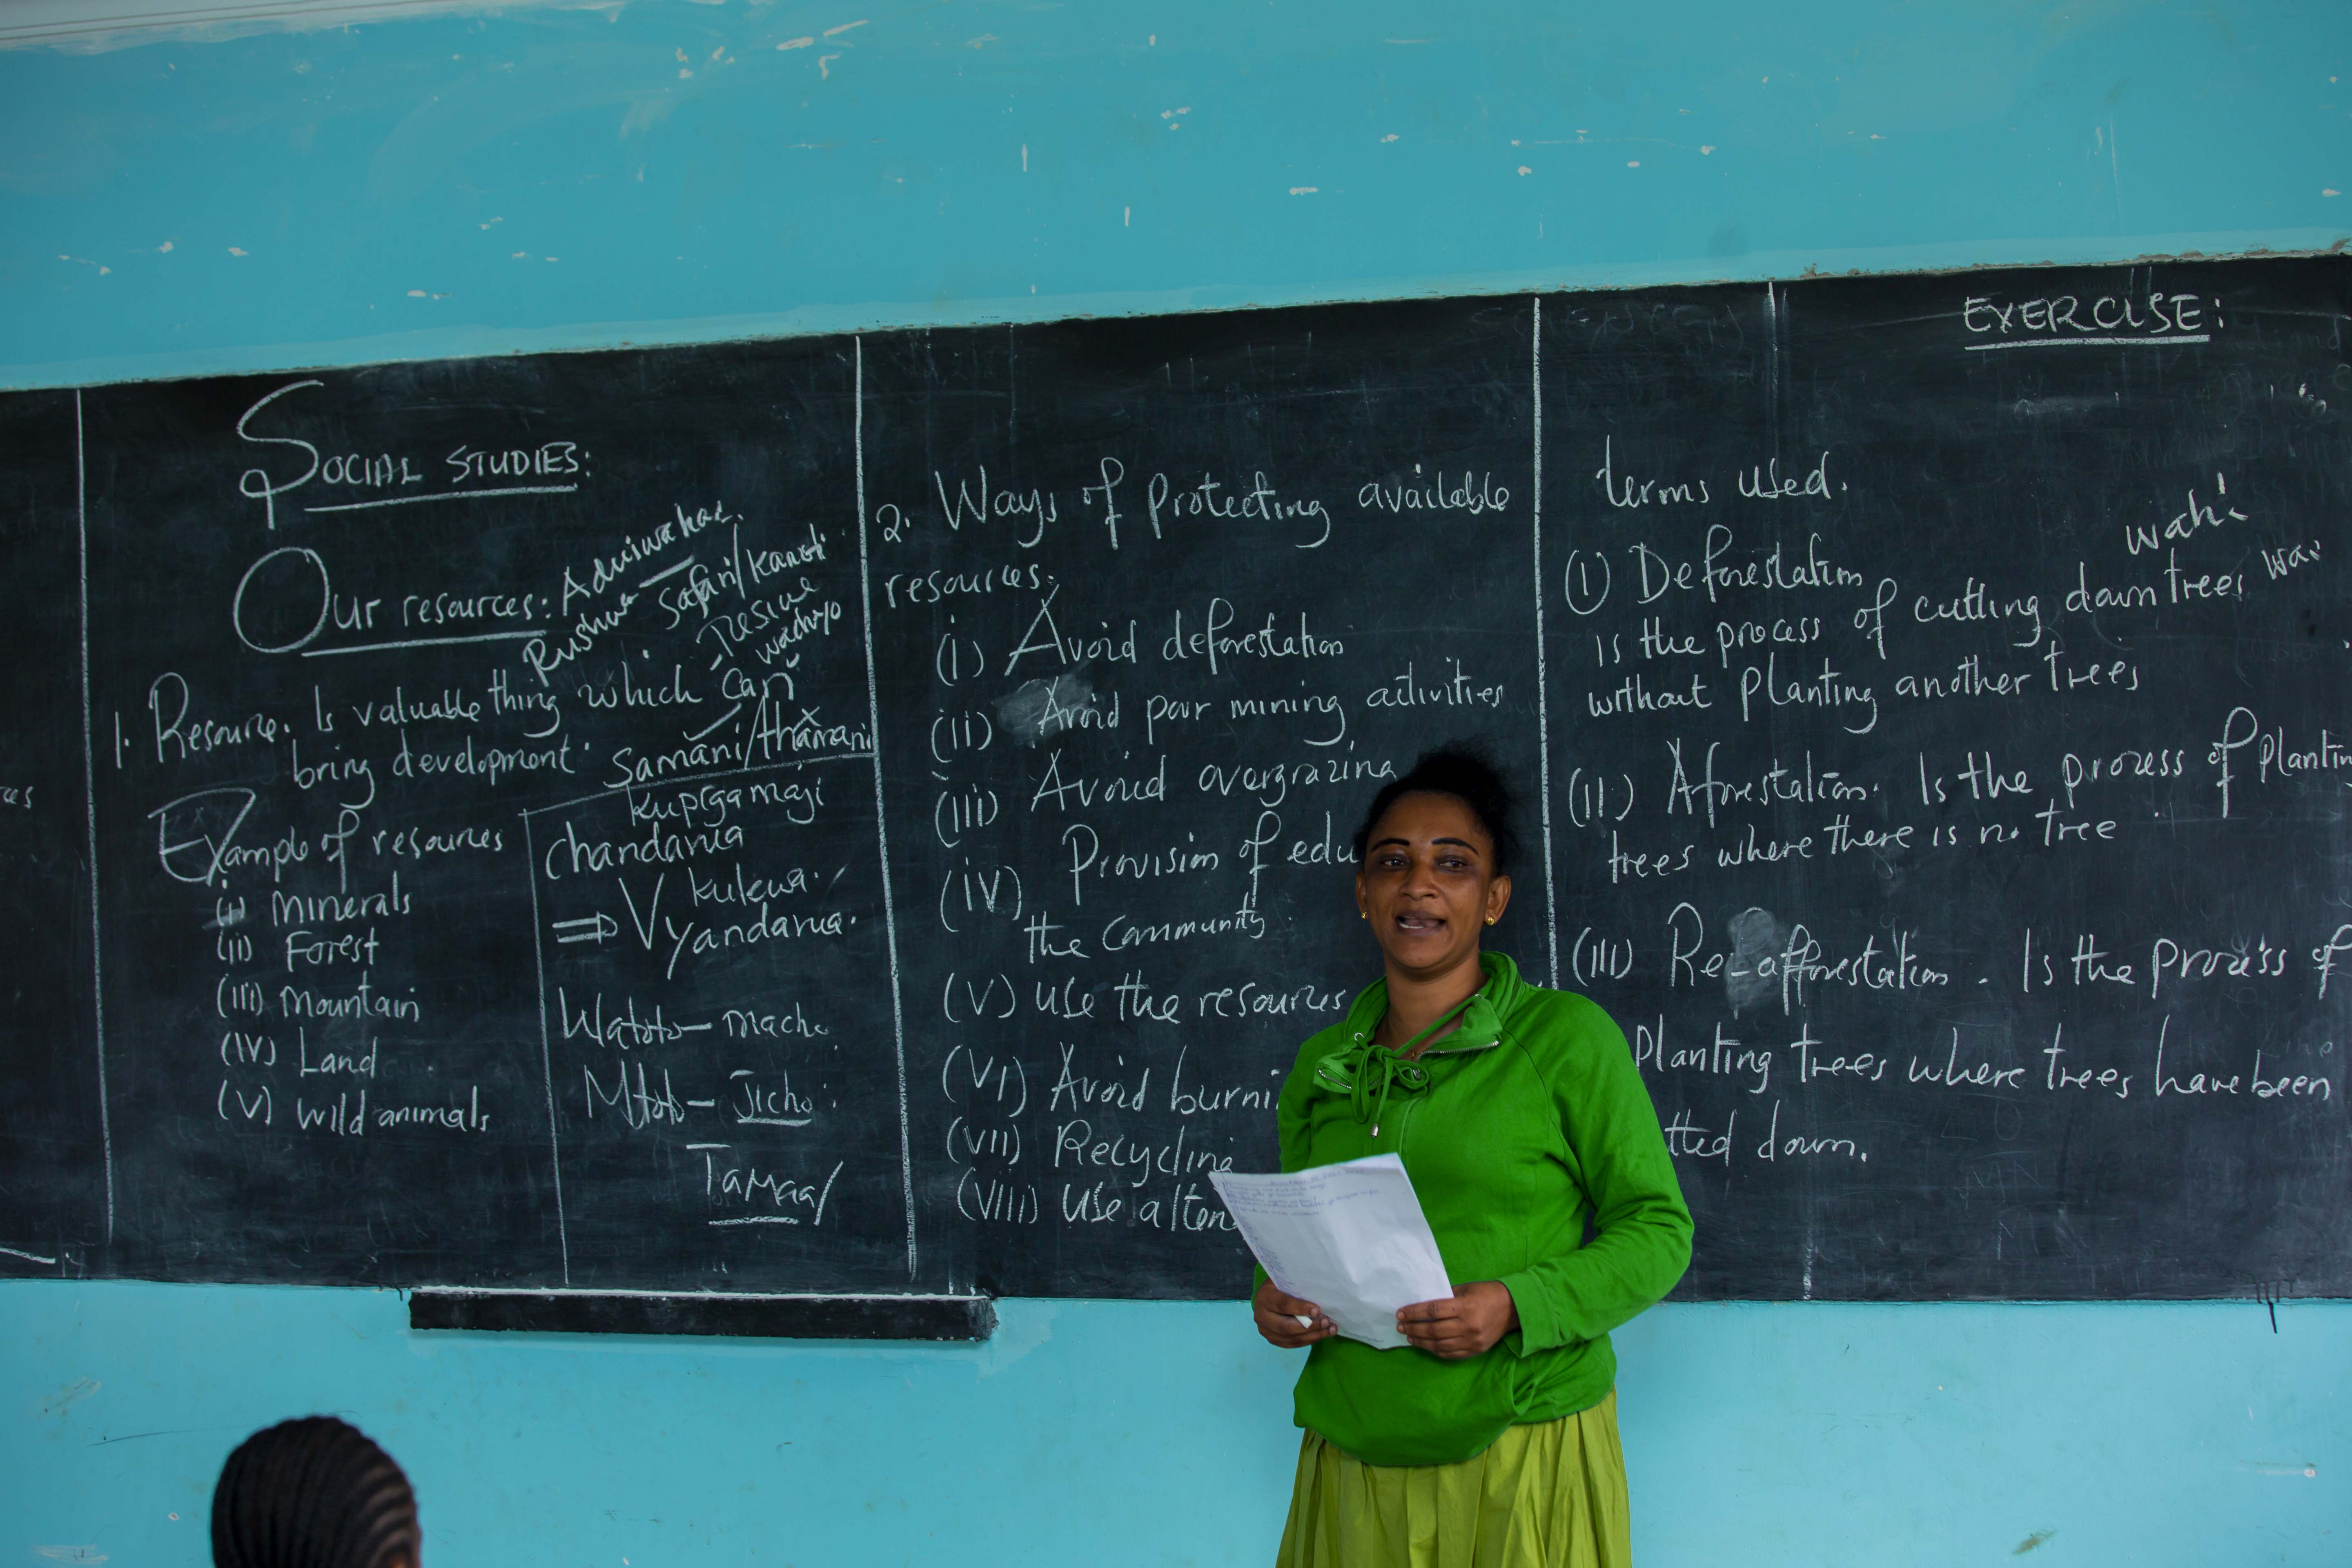 SOCIAL STUDIES:
OUR resources:
Rushwa
Safari/
wachuyo
1. Resource. Is valuable thing which can
bring development.
Samani/thamani
Example of resources
(i) Minerals
(ii) Forest
(iii) Mountain
(iv) Land
(v) wild animals
chandarua
kukua.
⇒ Vyandarua.
Watoto – macho
Mtoto – Jicho
Tamaa/
2. Ways of protecting available
resources.
(i) Avoid deforestation
(ii) Avoid poor mining activities
(iii) Avoid overgrazing
(iv) Provision of edu
the Community.
(v) Use the resources
(VI) Avoid burni
(VII) Recycling
(VIII) Use altern
EXERCISE:
terms used.
wahi
(I) Deforestation
is the process of cutting down trees
without planting another trees
(II) Aforestation. Is the process of Plantin
trees where there is no tree
(III) Re-afforestation. Is the process of
Planting trees where trees have been
tted down.